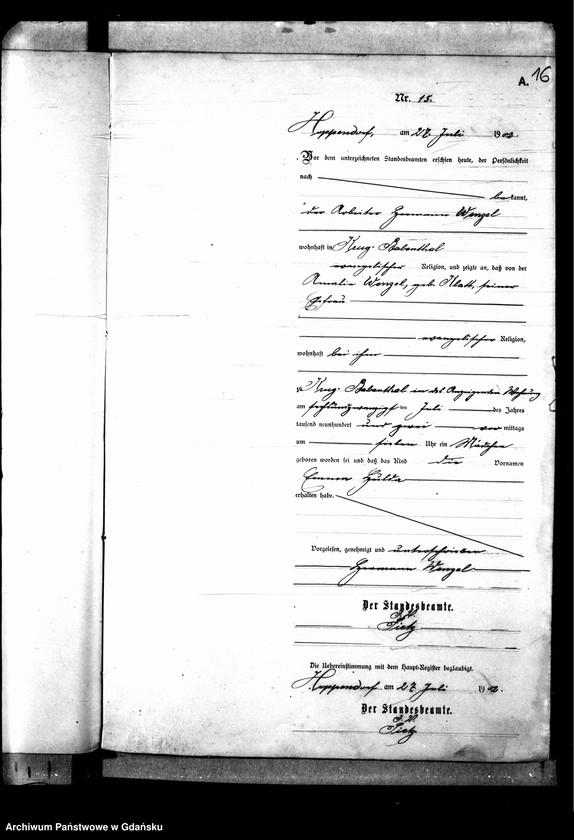 A. 16
Nr. 15.
Hoppendorf, am 27. Juli 1902.
Vor dem unterzeichneten Standesbeamten erschien heute, der Persönlichkeit
nach
bekannt,
der Arbeiter Hermann Wenzel
wohnhaft in Krug-Babenthal
evangelischer Religion, und zeigte an, daß von der
Amalie Wenzel, geb. Klatt, seiner
Ehefrau
evangelischer Religion,
wohnhaft bei ihm
zu Krug-Babenthal in des Anzeigenden Wohnung
am sechsundzwanzigsten Juli des Jahres
tausend neunhundert und zwei vormittags
um sieben Uhr ein Mädchen
geboren worden sei und daß das Kind die Vornamen
Emma Hulda
erhalten habe.
Vorgelesen, genehmigt und unterschrieben
Hermann Wenzel
Der Standesbeamte.
Tietz
Die Uebereinstimmung mit dem Haupt-Register beglaubigt.
Hoppendorf am 27. Juli 1902.
Der Standesbeamte.
Tietz
Archiwum Państwowe w Gdańsku